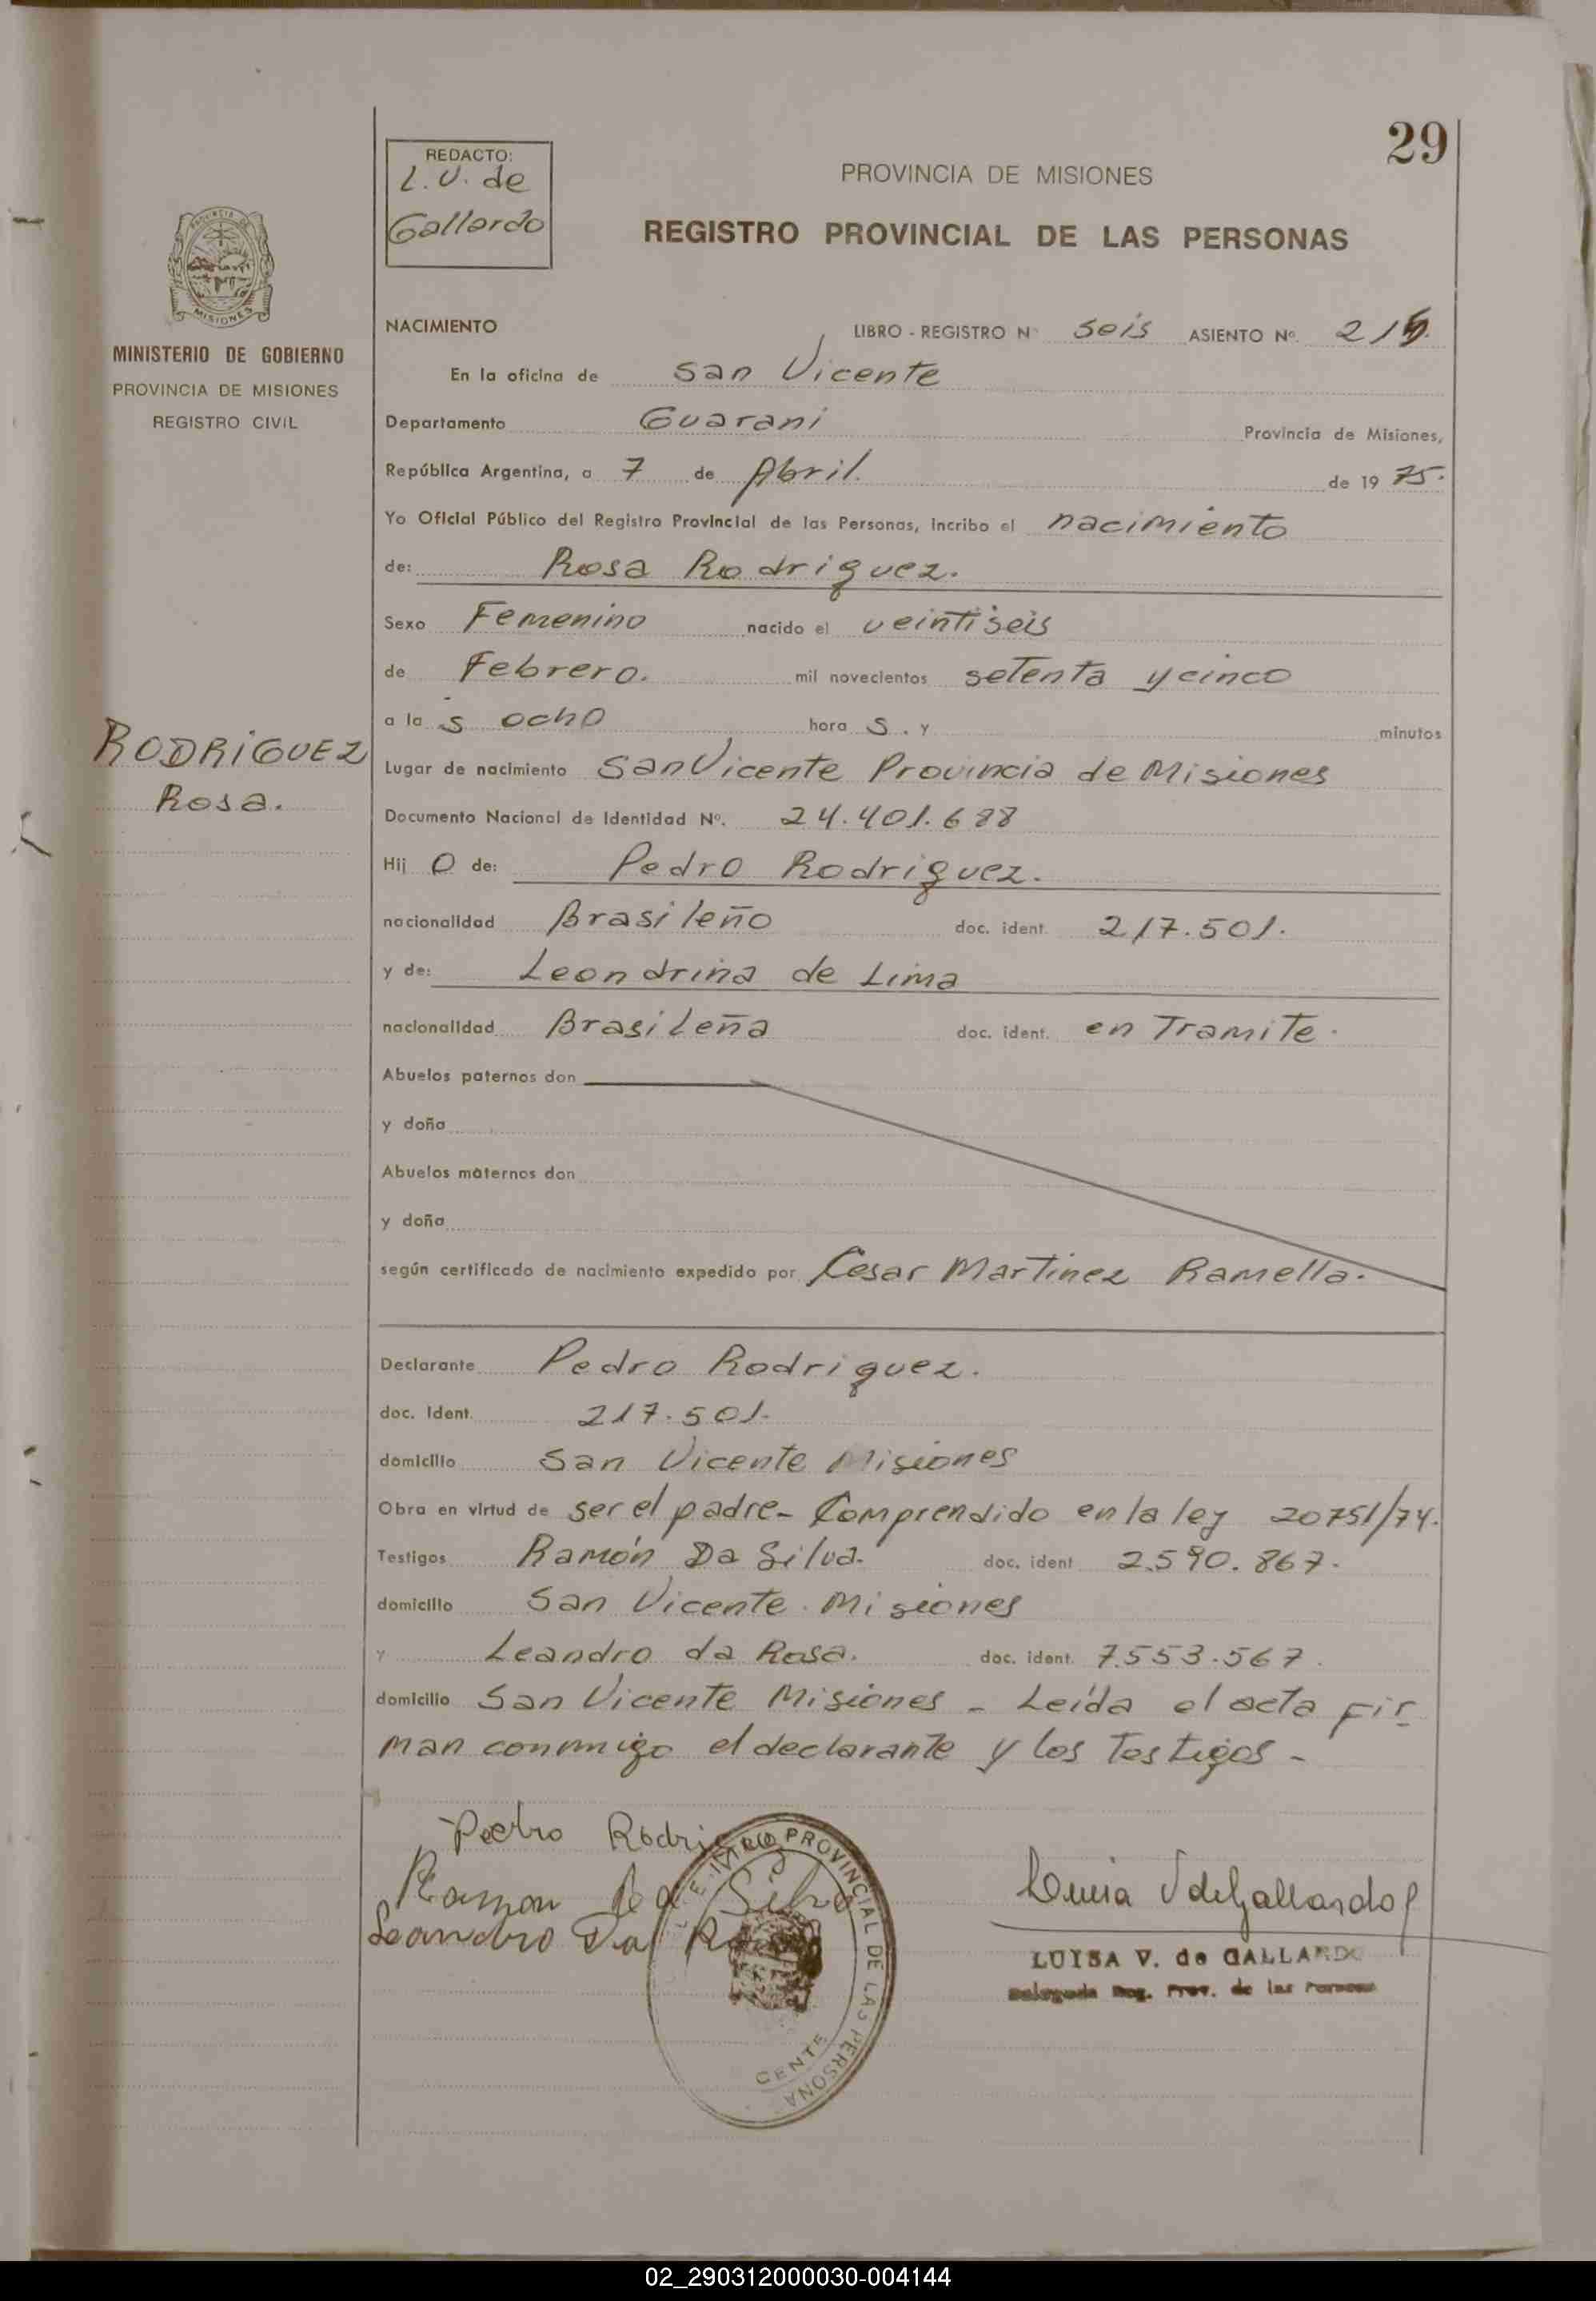 29
REDACTO:
L.V. de
Gallardo
PROVINCIA DE MISIONES
REGISTRO PROVINCIAL DE LAS PERSONAS
MISIONES
MINISTERIO DE GOBIERNO
PROVINCIA DE MISIONES
REGISTRO CIVIL
NACIMIENTO LIBRO - REGISTRO Nº seis ASIENTO Nº
En la oficina de San Vicente
Departamento Guarani Provincia de Misiones,
República Argentina, a 7 de Abril. de 1975.
Yo Oficial Público del Registro Provincial de las Personas, incribo el nacimiento
de: Rosa Rodriguez.
Sexo Femenino nacido el veintiseis
de Febrero. mil novecientos setenta y cinco
a las ocho horas. y minutos
RODRIGUEZ
Rosa.
Lugar de nacimiento San Vicente Provincia de Misiones
Documento Nacional de Identidad Nº. 24.401.688
Hij o de: Pedro Rodriguez.
nacionalidad Brasileño doc. ident. 217.501.
y de: Leondrina de Lima
nacionalidad Brasileña doc. ident. en Tramite.
Abuelos paternos don
y doña
Abuelos maternos don
y doña
según certificado de nacimiento expedido por Cesar Martinez Ramella.
Declarante Pedro Rodriguez.
doc. Ident. 217.501.
domicilio San Vicente Misiones
Obra en virtud de ser el padre - Comprendido en la ley 20751/74.
Testigos Ramón Da Silva. doc. ident 2.590.867.
domicilio San Vicente. Misiones
y Leandro da Rosa. doc. ident. 7.553.567.
domicilio San Vicente Misiones - Leída el acta fir-
man conmigo el declarante y los Testigos -
Pedro Rodrig
Ramon Da Silva
Leandro Da
PROVINCIAL DE LAS PERSONA
CENTE
Luisa V de Gallardo
LUISA V. de GALLARDO
Delegada Reg. Prov. de las Personas
02_290312000030-004144